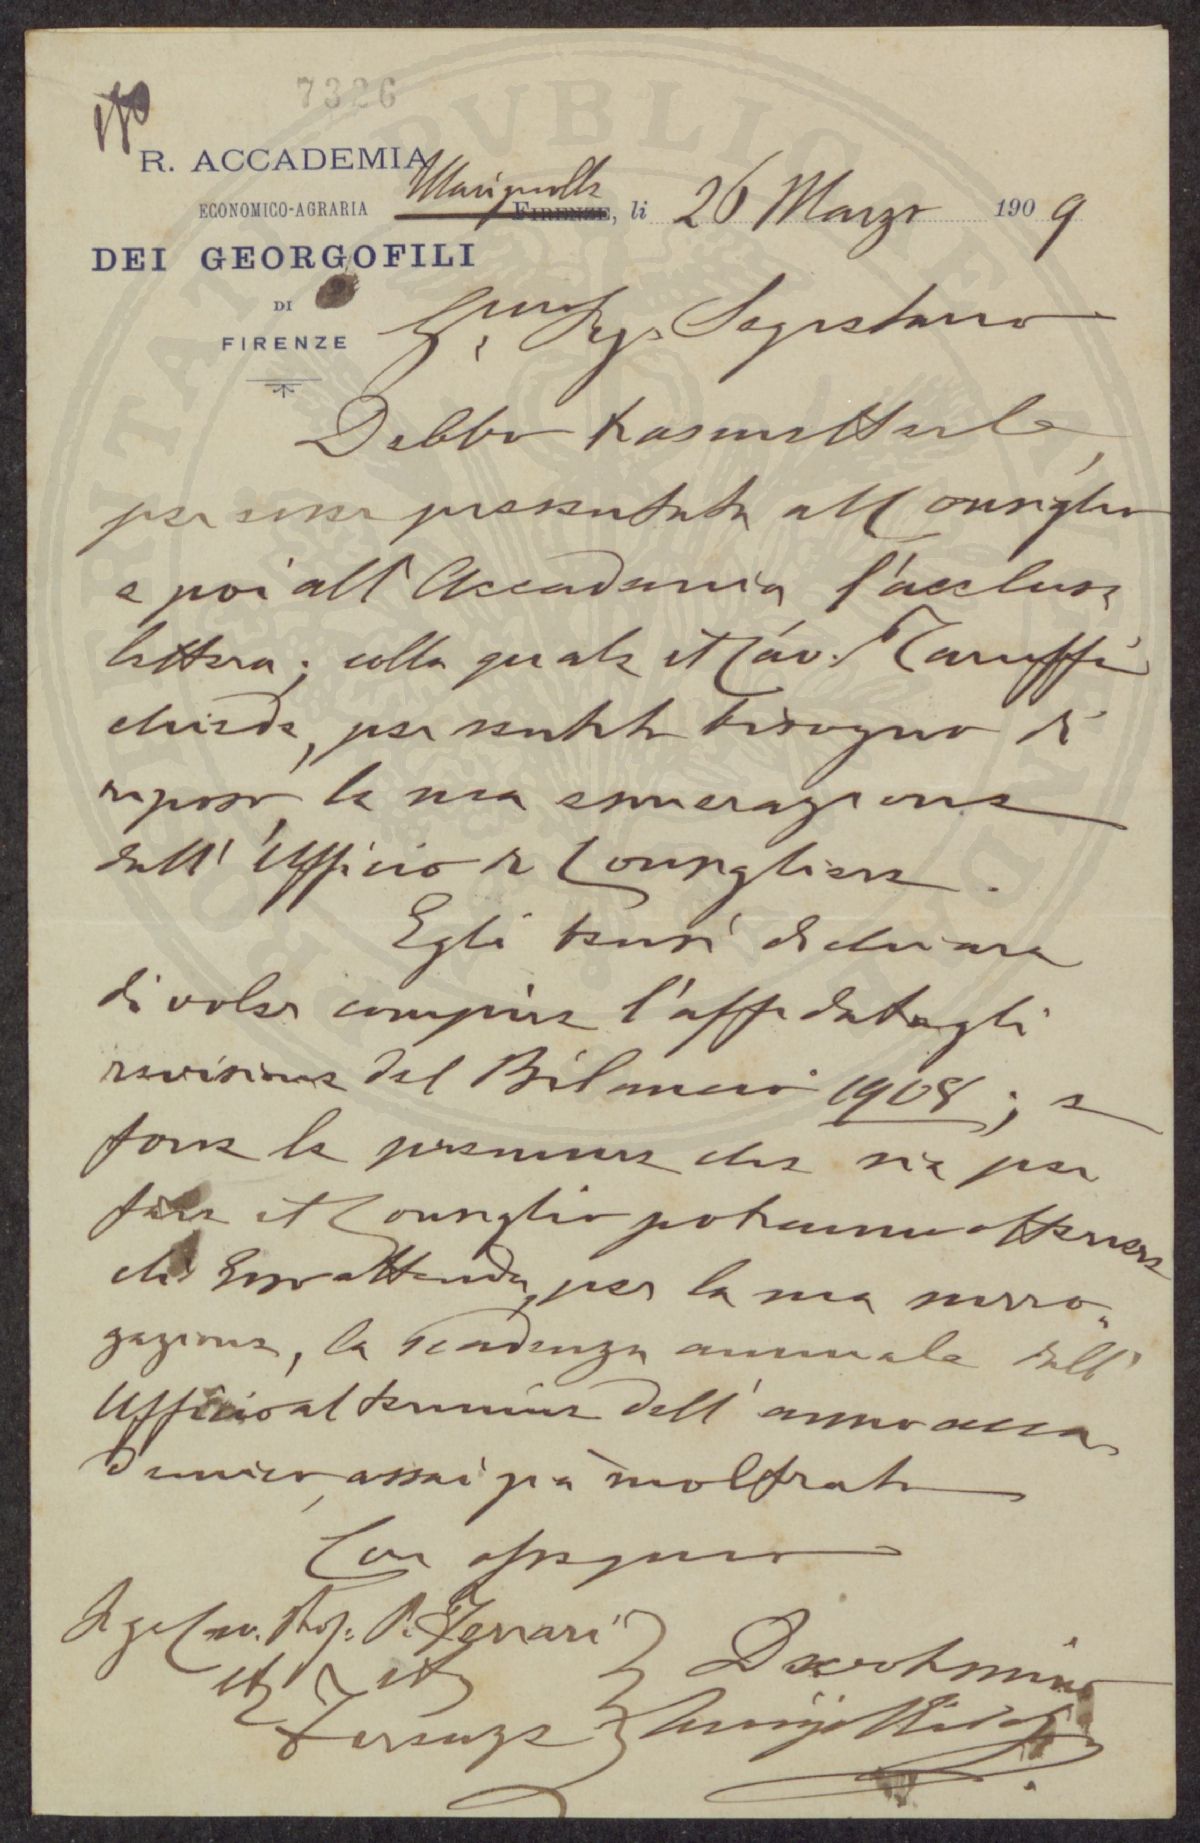 7326
R. ACCADEMIA
ECONOMICO-AGRARIA
DEI GEORGOFILI
DI
FIRENZE
Marignolle
FIRENZE, li 26 Marzo 1909
Sig. Segretario
Debbo trasmetterle,
per esser presentata al Consiglio
e poi all'Accademia l'acclusa
lettera; colla quale il Cav. Taruffi
chiede, per sentito bisogno di
riposo, la sua esonerazione
dall'Ufficio di Consigliere.
Egli però dichiara
di voler compire l'affidatagli
revisione del Bilancio 1908; e
forse le premure che sia per
fare il Consiglio potranno ottenere
che Esso attenda, per la sua surro-
gazione, la scadenza annuale dell'
Ufficio al termine dell'anno acca
demico, assai già inoltrato
Con ossequio
Sig. Cav. Prof. P. Ferrari
Firenze
Devotissimo